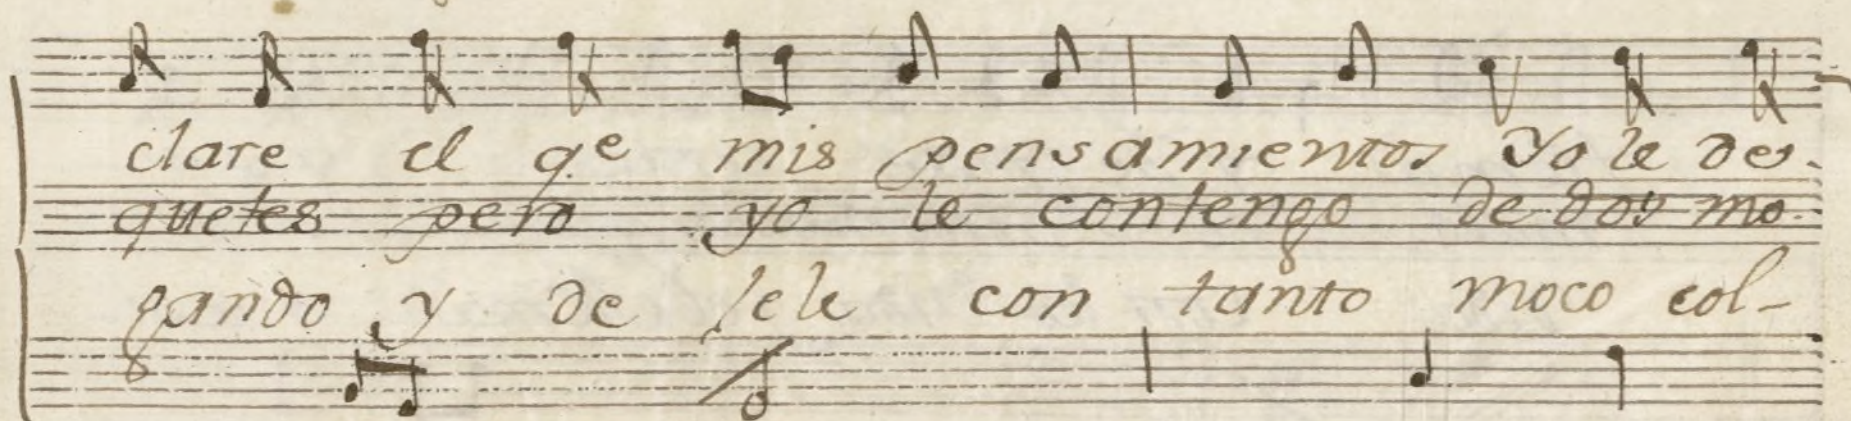 clare el qe mis pensamientos Yo le des-
quetes pero yo le contengo de dos mo-
gando y de lele con tanto moco col-